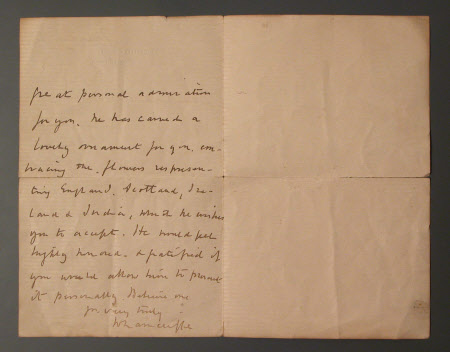 great personal admiration
for you. He has carved a
lovely ornament for you, em-
bracing the flowers represen-
ting England, Scotland, Ire-
land & India, which he wishes
you to accept. He would feel
highly honored & gratified if
you would allow him to present
it personally. Believe me
yrs very truly
Wharncliffe